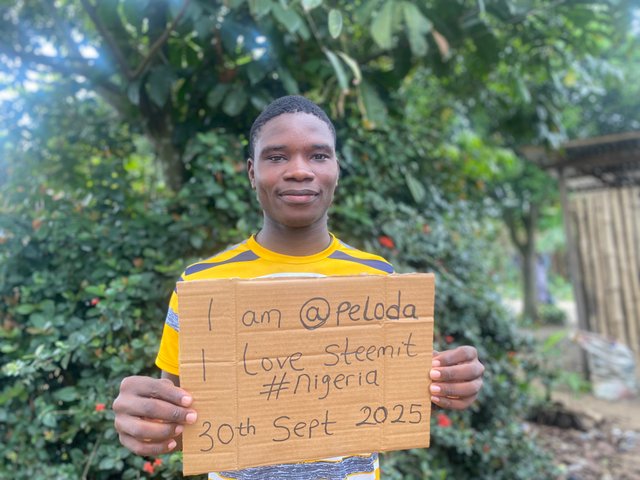 I am @peloda
I Love Steemit
#nigeria
30th Sept 2025